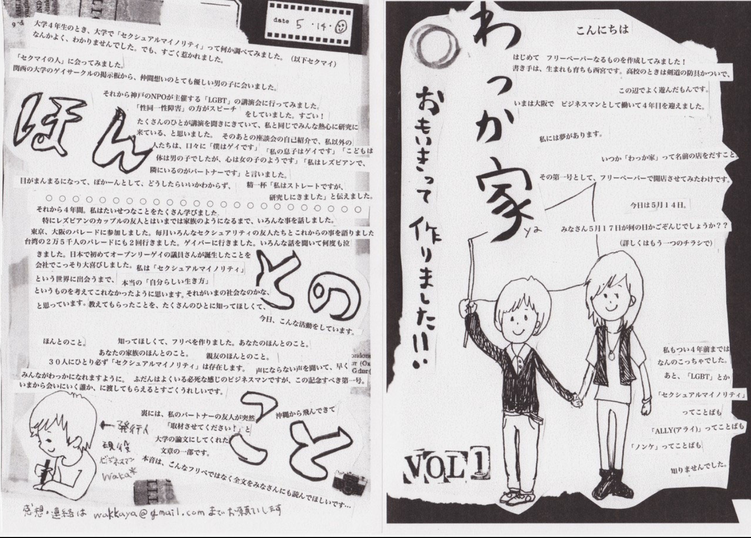 わっか家
ya
おもいきって作りました!!!
VOL1
こんにちは
はじめて フリーペーパーなるものを作成してみました!
書き手は、生まれも育ちも西宮です。高校のときは剣道の防具かついで、
この辺でよく遊んだもんです。
いまは大阪で ビジネスマンとして働いて4年目を迎えました。
私には夢があります。
いつか「わっか家」って名前の店をだすこと
その第一号として、フリーペーパーで開店させてみたわけです。
今日は5月14日。
みなさん5月17日が何の日かごぞんじでしょうか??
(詳しくはもう一つのチラシで)
私もつい4年前までは
なんのこっちゃでした。
あと、「LGBT」とか
「セクシュアルマイノリティ」
ってことばも
「ALLY(アライ)」ってことばも
「ノンケ」ってことばも
知りませんでした。
date 5・14・
大学4年生のとき、大学で「セクシュアルマイノリティ」って何か調べてみました。(以下セクマイ)
なんかよく、わかりませんでした。でも、すごく惹かれました。
「セクマイの人」に会ってみました。
関西の大学のゲイサークルの掲示板から、仲間想いのとても優しい男の子に会いました。
それから神戸のNPOが主催する「LGBT」の講演会に行ってみました。
「性同一性障害」の方がスピーチ をしていました。すごい!
たくさんのひとが講演を聞きにきていて、私と同じでみんな熱心に研究に
来ている、と思いました。 そのあとの座談会の自己紹介で、私以外の
人たちは、口々に「僕はゲイです」「私の息子はゲイです」「こどもは
体は男の子でしたが、心は女の子のようです」「私はレズビアンで、
隣にいるのがパートナーです」と言いました。
目がまんまるになって、ぽかーんとして、どうしたらいいかわからず、 精一杯「私はストレートですが、
研究しにきました」と伝えました。
○○○○○○○○○○○○○○○○○○○○○○
それから4年間、私はたいせつなことをたくさん学びました。
特にレズビアンのカップルの友人とはいまでは家族のようになるまで、いろんな事を話しました。
東京、大阪のパレードに参加しました。毎月いろんなセクシュアリティの友人たちとこれからの事を語りました
台湾の2万5千人のパレードにも2回行きました。ゲイバーに行きました。いろんな話を聞いて何度も泣
きました。日本で初めてオープンリーゲイの議員さんが誕生したことを
会社でこっそり大喜びしました。私は「セクシュアルマイノリティ」
という世界に出会うまで、 本当の「自分らしい生き方」
というものを考えてこれなかったように思います。それがいまの社会なのかな、
と思っています。教えてもらったことを、たくさんのひとに知ってほしくて、
今日、こんな活動をしています。
ほんとのこと
ほんとのこと。 知ってほしくて、フリペを作りました。あなたのほんとのこと。
あなたの家族のほんとのこと。 親友のほんとのこと。
30人にひとり必ず「セクシュアルマイノリティ」は存在します。 声にならない声を聞いて、早く
みんながわっかになれますように。 ふだんはよくいる必死な感じのビジネスマンですが、この記念すべき第一号。
いまから会いにいく誰か、に渡してもらえるとすごくうれしいです。
裏には、私のパートナーの友人が突然 沖縄から飛んできて
「取材させてください!」と
大学の論文にしてくれた
文章の一部です。
本音は、こんなフリペではなく全文をみなさんにも読んでほしいです…
← 発行人
現役
ビジネスマン
waka
感想・連絡は wakkaya@gmail.com までお願いします